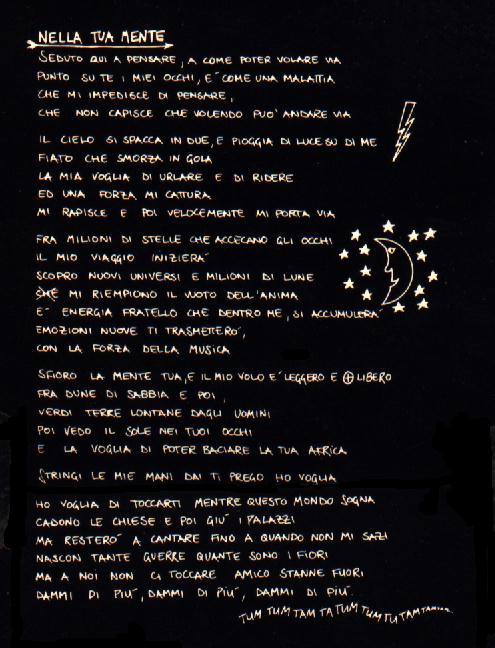 NELLA TUA MENTE
SEDUTO QUI A PENSARE, A COME POTER VOLARE VIA
PUNTO SU TE I MIEI OCCHI, E' COME UNA MALATTIA
CHE MI IMPEDISCE DI PENSARE,
CHE NON CAPISCE CHE VOLENDO PUO' ANDARE VIA
IL CIELO SI SPACCA IN DUE, E PIOGGIA DI LUCE SU DI ME
FIATO CHE SMORZA IN GOLA
LA MIA VOGLIA DI URLARE E DI RIDERE
ED UNA FORZA MI CATTURA
MI RAPISCE E POI VELOCEMENTE MI PORTA VIA
FRA MILIONI DI STELLE CHE ACCECANO GLI OCCHI
IL MIO VIAGGIO INIZIERA'
SCOPRO NUOVI UNIVERSI E MILIONI DI LUNE
CHE MI RIEMPIONO IL VUOTO DELL'ANIMA
E' ENERGIA FRATELLO CHE DENTRO ME, SI ACCUMULERA'
EMOZIONI NUOVE TI TRASMETTERO',
CON LA FORZA DELLA MUSICA
SFIORO LA MENTE TUA, E IL MIO VOLO E' LEGGERO E LIBERO
FRA DUNE DI SABBIA E POI,
VERDI TERRE LONTANE DAGLI UOMINI
POI VEDO IL SOLE NEI TUOI OCCHI
E LA VOGLIA DI POTER BACIARE LA TUA AFRICA
STRINGI LE MIE MANI DAI TI PREGO HO VOGLIA
HO VOGLIA DI TOCCARTI MENTRE QUESTO MONDO SOGNA
CADONO LE CHIESE E POI GIU' I PALAZZI
MA RESTERO' A CANTARE FINO A QUANDO NON MI SAZI
NASCON TANTE GUERRE QUANTE SONO I FIORI
MA A NOI NON CI TOCCARE AMICO STANNE FUORI
DAMMI DI PIU', DAMMI DI PIU', DAMMI DI PIU'.
TUM TUM TAM TA TUM TUM TU TAM TAM